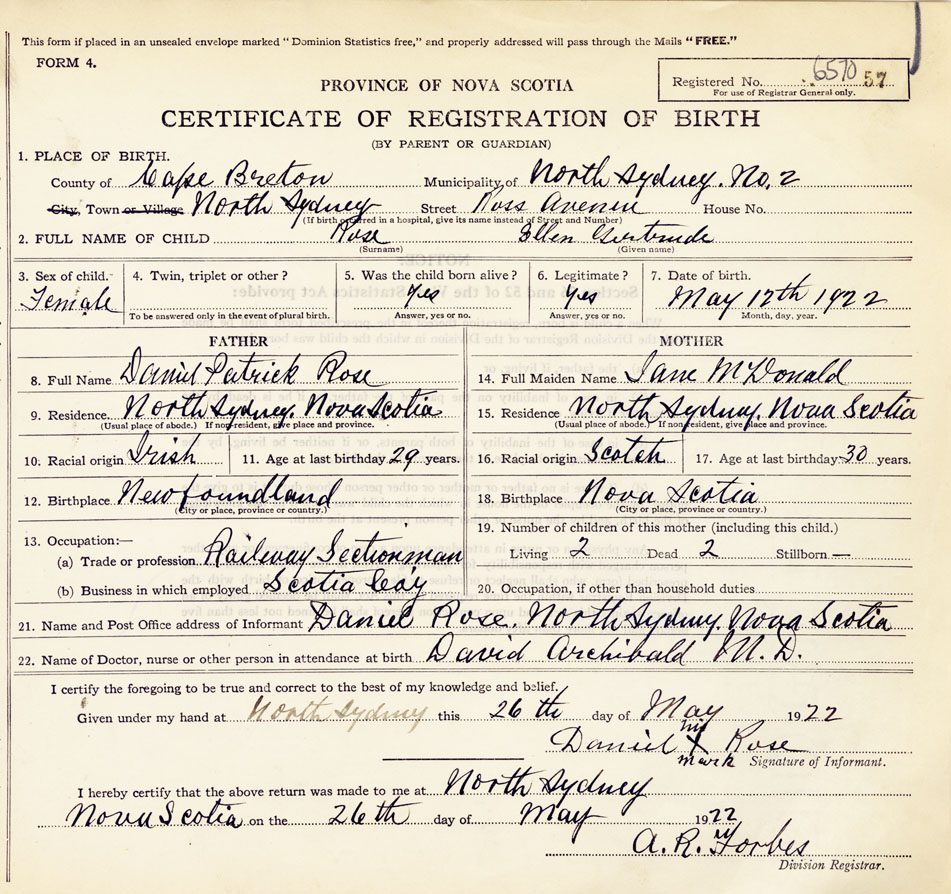 This form if placed in an unsealed envelope marked "Dominion Statistics free," and properly addressed will pass through the Mails "FREE."
FORM 4.
Registered No. 6570 57
For use of Registrar General only.
PROVINCE OF NOVA SCOTIA
CERTIFICATE OF REGISTRATION OF BIRTH
(BY PARENT OR GUARDIAN)
1. PLACE OF BIRTH.
County of Cape Breton Municipality of North Sydney. No, 2
City, Town or Village North Sydney Street Ross Avenue House No.
(If birth occurred in a hospital, give its name instead of Street and Number)
2. FULL NAME OF CHILD Rose Ellen Gertrude
(Surname) (Given name)
3. Sex of child. 4. Twin, triplet or other? 5. Was the child born alive? 6. Legitimate? 7. Date of birth.
Female Yes Yes May 12th 1922
To be answered only in the event of plural birth. Answer, yes or no. Answer, yes or no. Month, day, year.
FATHER MOTHER
8. Full Name Daniel Patrick Rose 14. Full Maiden Name Jane McDonald
9. Residence North Sydney. Nova Scotia 15. Residence North Sydney. Nova Scotia
(Usual place of abode.) If non-resident, give place and province. (Usual place of abode.) If non-resident, give place and province.
10. Racial origin Irish 11. Age at last birthday 29 years. 16. Racial origin Scotch 17. Age at last birthday 30 years.
12. Birthplace Newfoundland 18. Birthplace Nova Scotia
(City or place, province or country.) (City or place, province or country.)
13. Occupation:— 19. Number of children of this mother (including this child.)
(a) Trade or profession Railway Sectionman Living 2 Dead 2 Stillborn —
(b) Business in which employed Scotia Coy 20. Occupation, if other than household duties
21. Name and Post Office address of Informant Daniel Rose. North Sydney. Nova Scotia
22. Name of Doctor, nurse or other person in attendance at birth David Archibald M. D.
I certify the foregoing to be true and correct to the best of my knowledge and belief.
Given under my hand at North Sydney this 26 th day of May 1922
his
Daniel X Rose
mark Signature of Informant.
I hereby certify that the above return was made to me at North Sydney
Nova Scotia on the 26th day of May 1922
A. R. Forbes
Division Registrar.